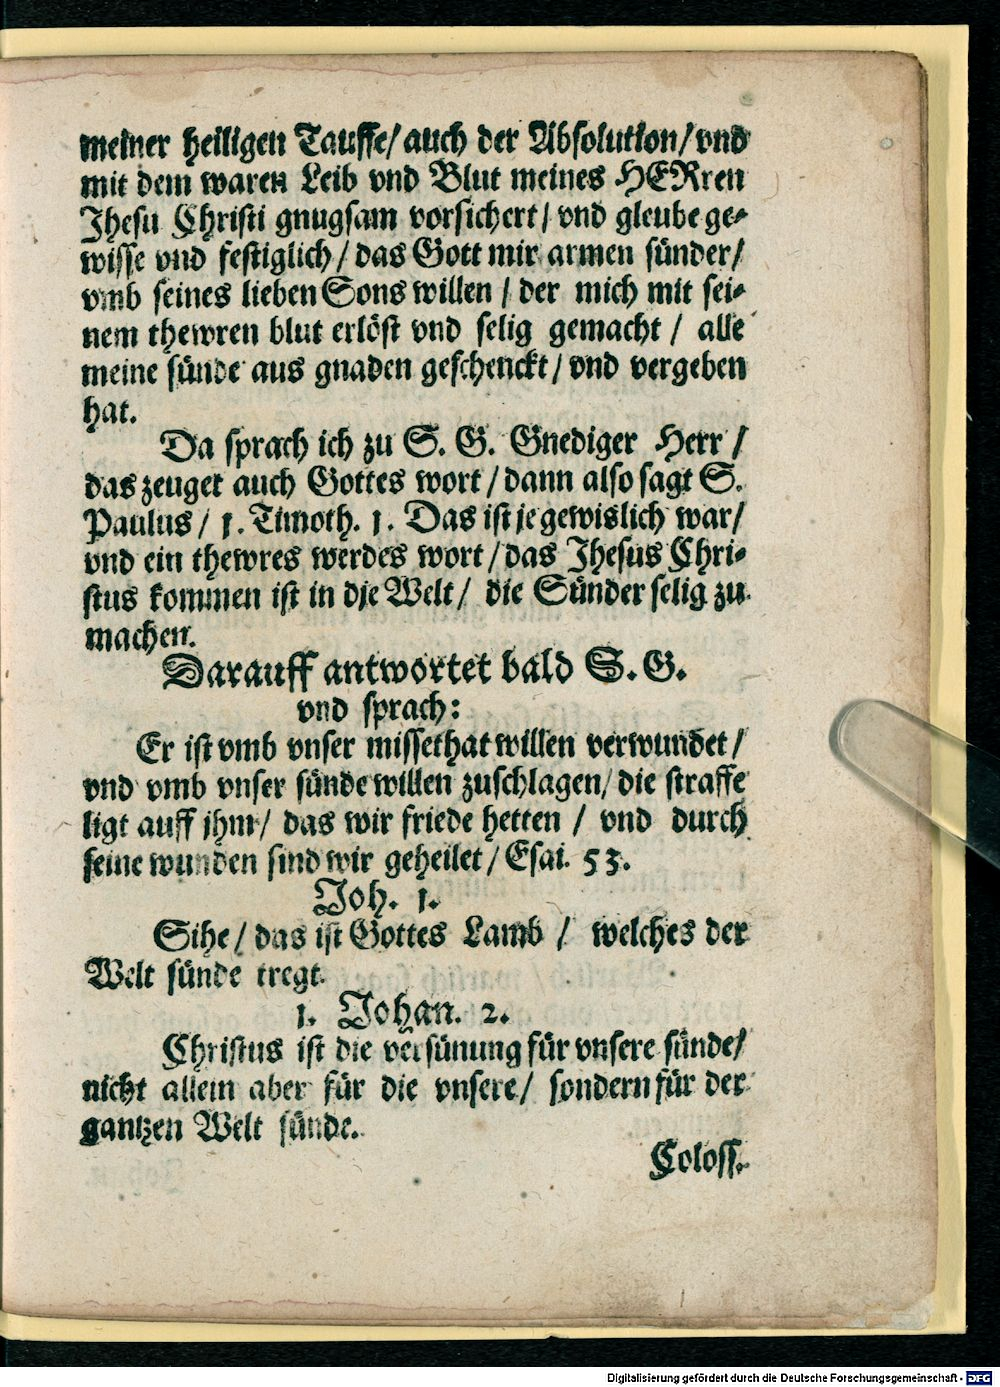 meiner heiligen Tauffe/ auch der Absolution/ vnd
mit dem waren Leib vnd Blut meines HERren
Jhesu Christi gnugsam vorsichert/ vnd gleube ge-
wisse vnd festiglich/ das Gott mir armen sünder/
vmb seines lieben Sons willen/ der mich mit sei-
nem thewren blut erlöst vnd selig gemacht/ alle
meine sünde aus gnaden geschenckt/ vnd vergeben
hat.
Da sprach ich zu S. G. Gnediger Herr/
das zeuget auch Gottes wort/ dann also sagt S.
Paulus/ 1. Timoth. 1. Das ist je gewislich war/
vnd ein thewres werdes wort/ das Jhesus Chri-
stus kommen ist in dje Welt/ die Sünder selig zu
machen.
Darauff antwortet bald S. G.
vnd sprach:
Er ist vmb vnser missethat willen verwundet/
vnd vmb vnser sünde willen zuschlagen/ die straffe
ligt auff jhm/ das wir friede hetten/ vnd durch
seine wunden sind wir geheilet/ Esai. 53.
Joh. 1.
Sihe/ das ist Gottes Lamb/ welches der
Welt sünde tregt.
1. Johan. 2.
Christus ist die versünung für vnsere sünde/
nicht allein aber für die vnsere/ sondern für der
gantzen Welt sünde.
Coloss.
Digitalisierung gefördert durch die Deutsche Forschungsgemeinschaft - DFG